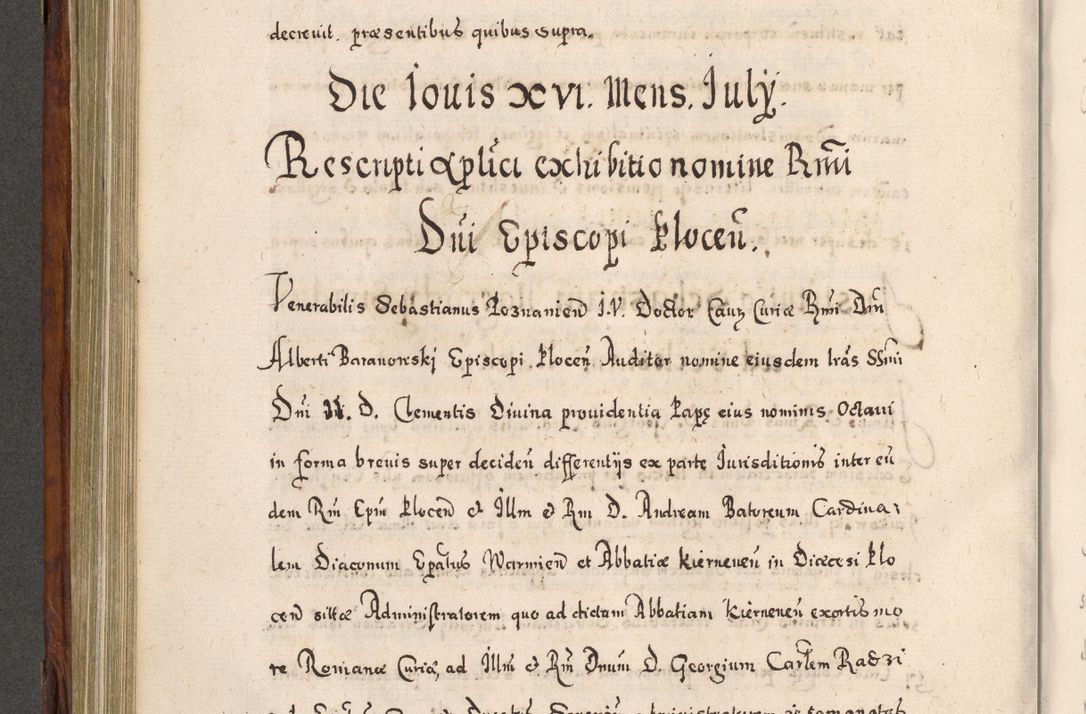 decreuit. præsentibus quibus supra.
Die Iouis XVI. Mens. Julÿ.
Rescripti aplici exhibitio nomine Rmi
Dni Episcopi Plocen.
Venerabilis Sebastianus Poznanien I.V. Doctor Caus Curiæ Rmi Dni
Alberti Baranowskj Episcopi Plocen Auditor nomine eiusdem lras Smi
Dni N. D. Clementis Diuina prouidentia Papę eius nominis Octaui
in forma breuis super deciden differentijs ex parte Jurisditionis inter eu
dem Rm Epm Plocen et Illm et Rm D. Andream Batoreum Cardina
lem Diaconum Epatus Warmien et Abbatiæ Kierneuen in Diœcesi Plo
cen sittæ Administratorem quo ad dictam Abbatiam Kiernenen exortis mo
re Romanæ Curiæ, ad Illm et Rm Dnum D. Georgium Carlem Radzi